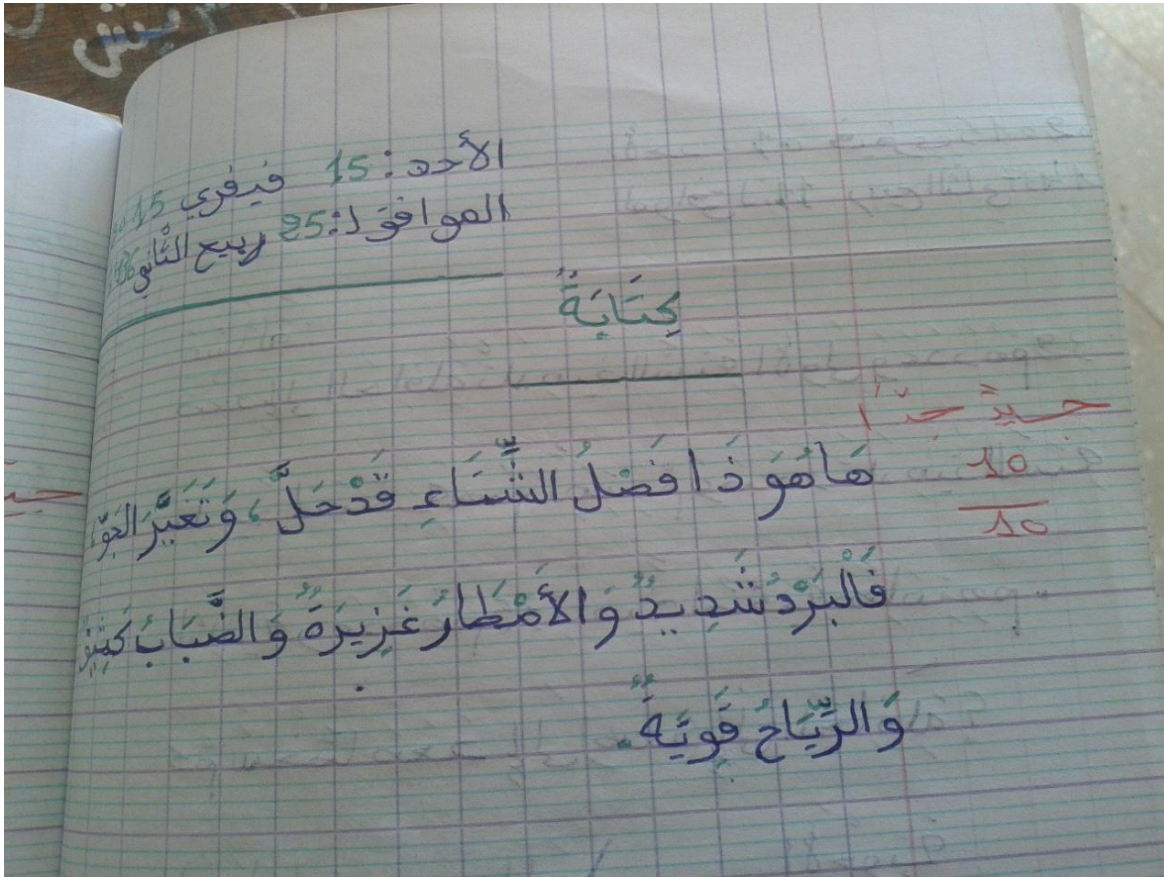 الأحد: 15 فيفري 2015
الموافق لـ: 25 ربيع الثاني 1436
كِتَابَةٌ
جيدٌ جدًّا
10
10
هَا هُوَ ذَا فَصْلُ الشِّتَاءِ قَدْ حَلَّ، وَتَغَيَّرَ الجَوُّ
فَالْبَرْدُ شَدِيدٌ وَالأَمْطَارُ غَزِيرَةٌ وَالضَّبَابُ كَثِيفٌ
وَالرِّيَاحُ قَوِيَّةٌ.